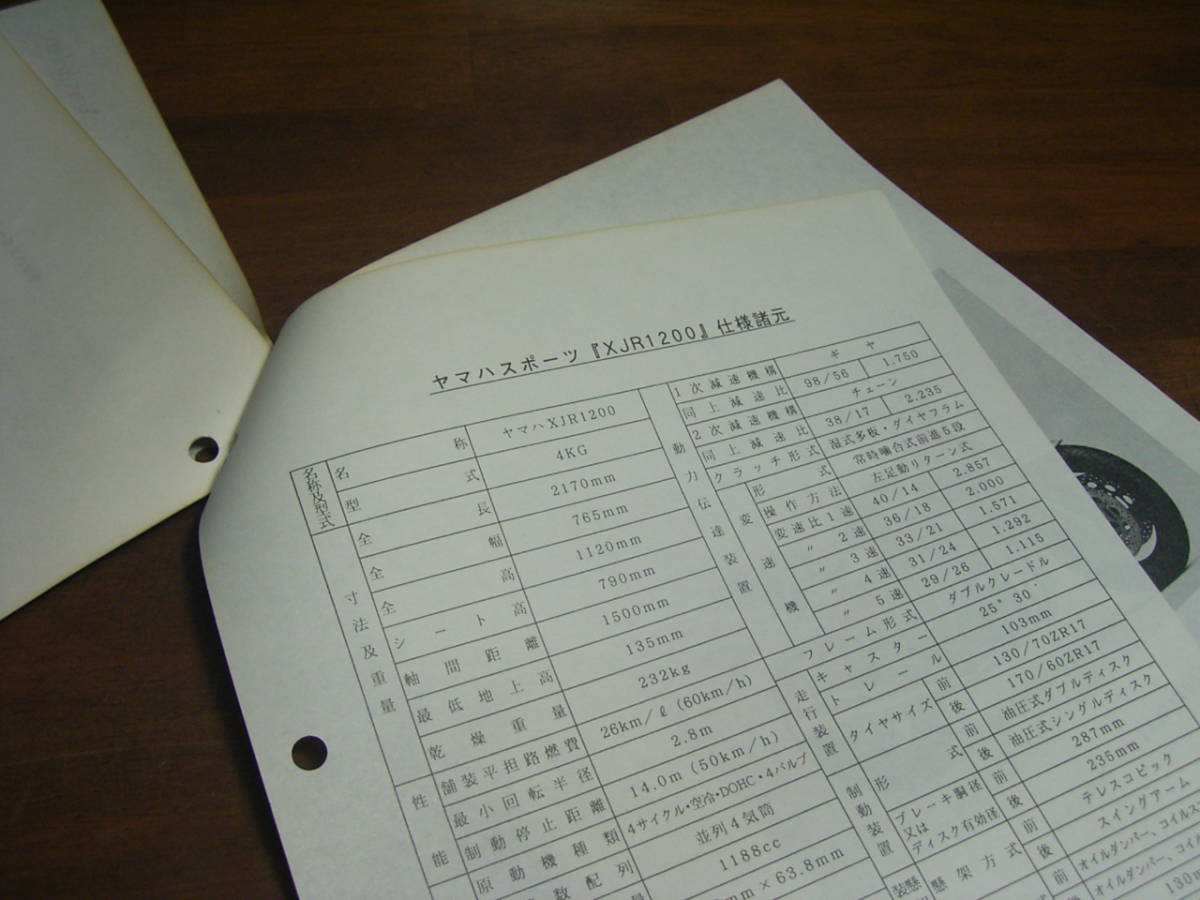 ヤマハスポーツ『XJR1200』仕様諸元
名称及型式 名 称 ヤマハXJR1200
型 式 4KG
寸法及重量 全 長 2170mm
全 幅 765mm
全 高 1120mm
シート高 790mm
軸間距離 1500mm
最低地上高 135mm
乾燥重量 232kg
性能 舗装平担路燃費 26km/ℓ(60km/h)
最小回転半径 2.8m
制動停止距離 14.0m(50km/h)
原動機種類 4サイクル・空冷・DOHC・4バルブ
数配列 並列4気筒
量 1188cc
mm×63.8mm
動力伝達装置 1次減速機構 ギヤ
同上減速比 98/56 1,750
2次減速機構 チェーン
同上減速比 38/17 2.235
クラッチ形式 湿式多板・ダイヤフラム
変速機 形 式 常時噛合式前進5段
操作方法 左足動リターン式
変速比1速 40/14 2.857
〃 2速 36/18 2.000
〃 3速 33/21 1.571
〃 4速 31/24 1.292
〃 5速 29/26 1.115
走行装置 フレーム形式 ダブルクレードル
キャスター 25°30′
トレール 103mm
タイヤサイズ 前 130/70ZR17
後 170/60ZR17
制動装置 形 式 前 油圧式ダブルディスク
後 油圧式シングルディスク
ブレーキ胴径又はディスク有効径 前 287mm
後 235mm
懸架方式 前 テレスコピック
後 スイングアーム
前 オイルダンパー、コイルス
後 オイルダンパー、コイ
130m